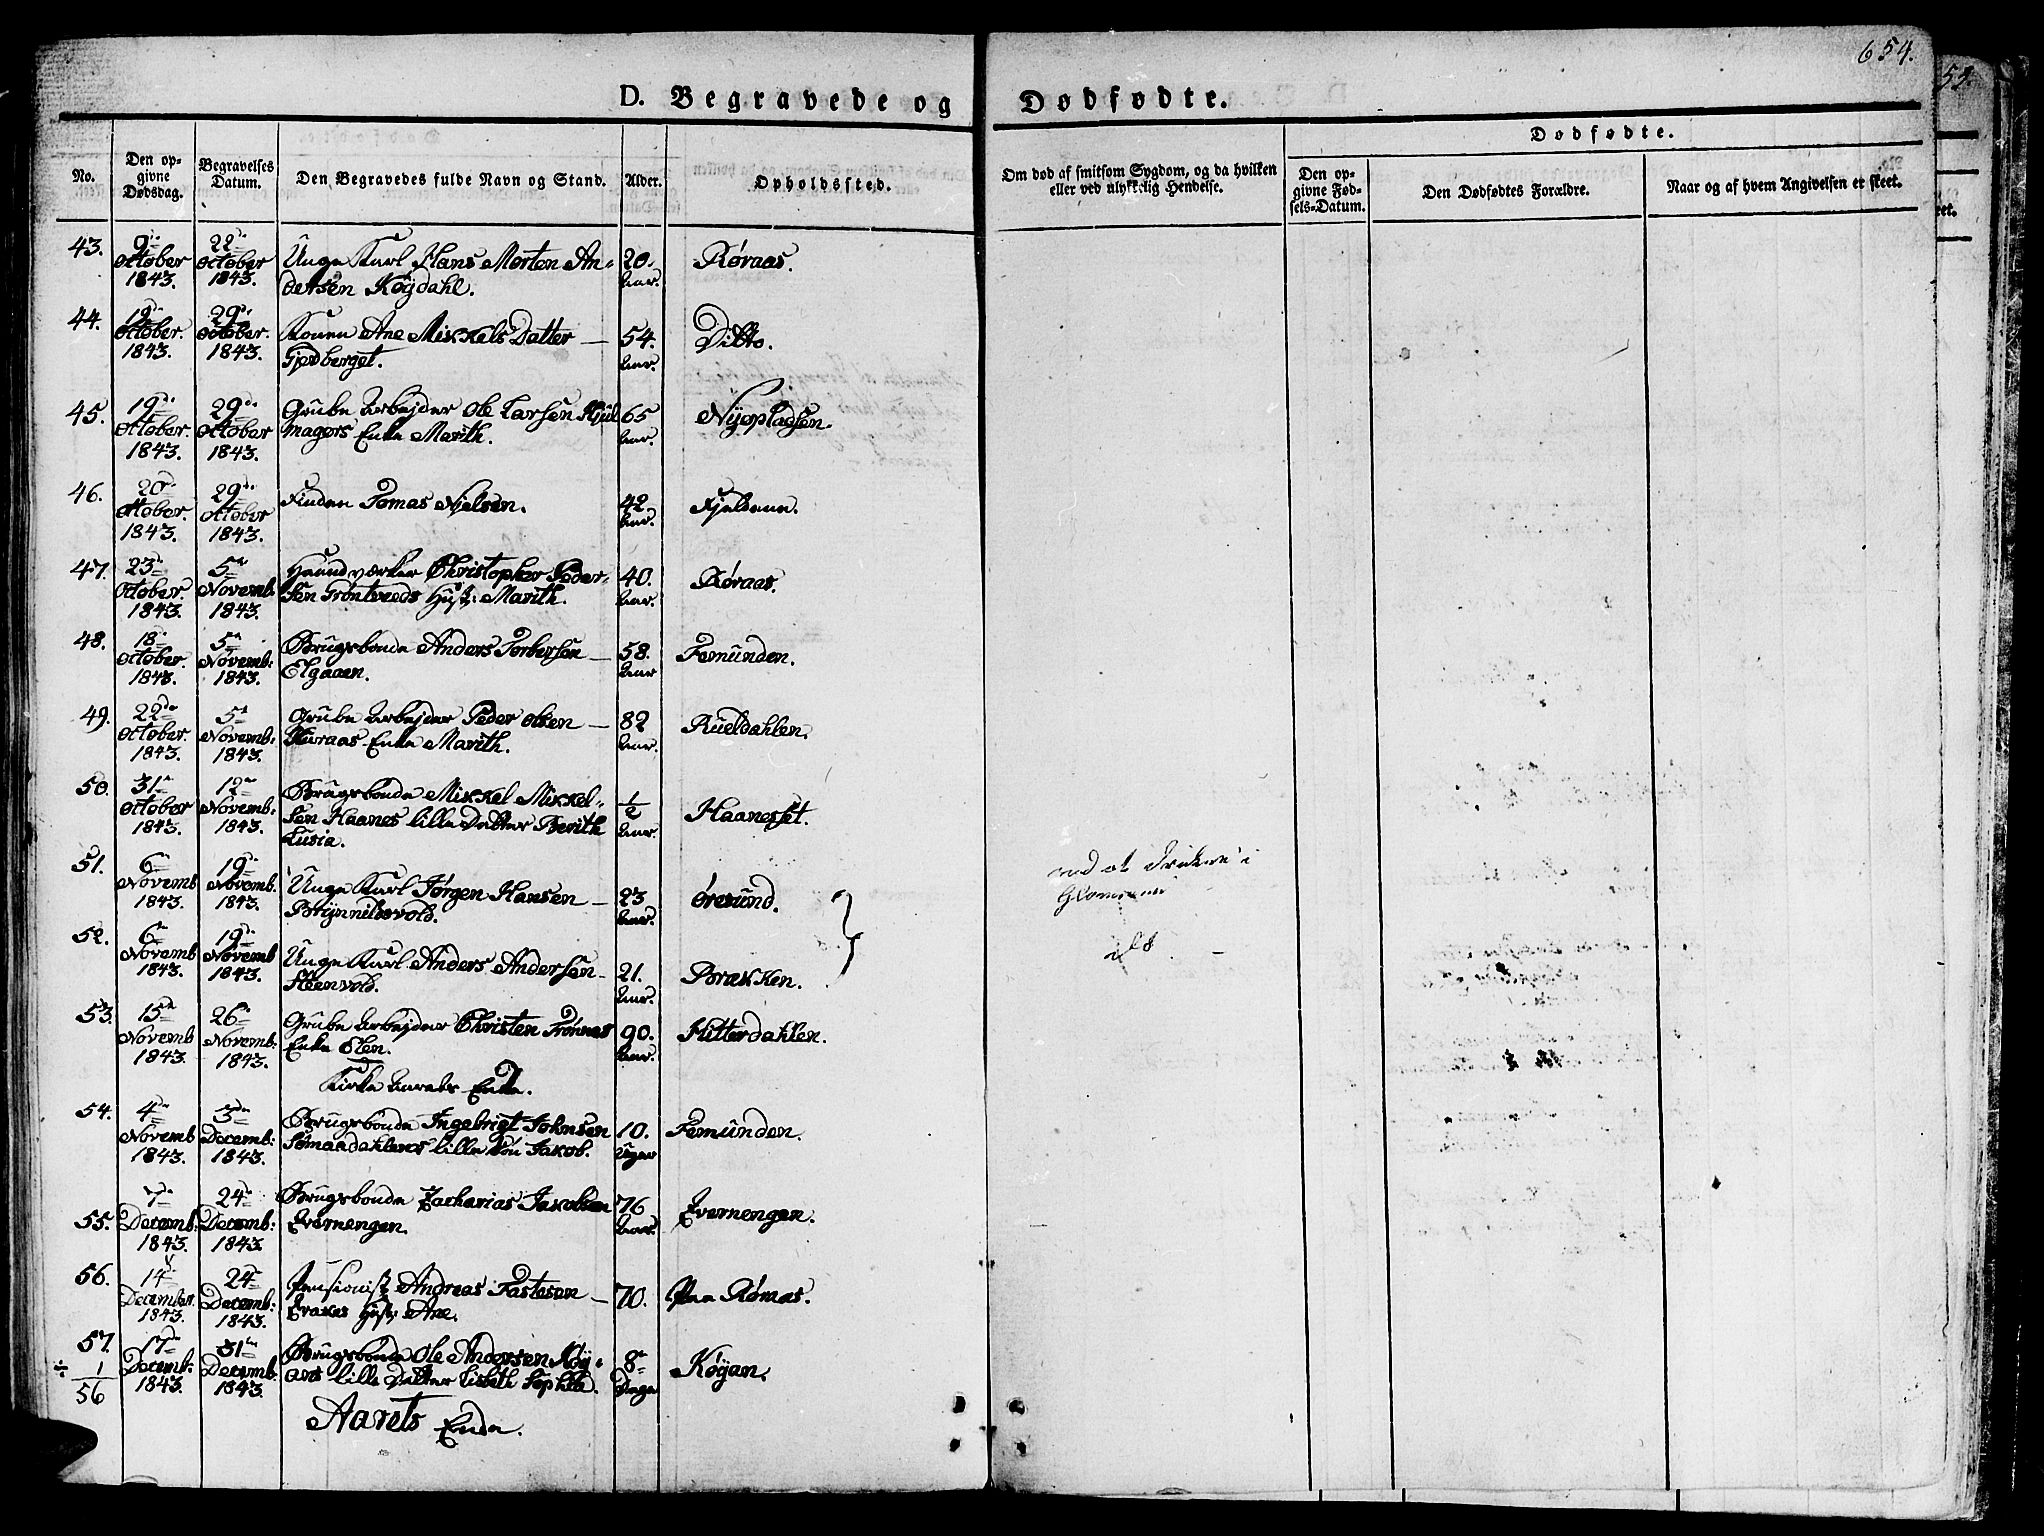 654.
D. Begravede og Dødfødte.
No.
Den opgivne Dødsdag.
Begravelses Datum.
Den Begravedes fulde Navn og Stand.
Alder.
Opholdssted.
Om død af smitsom Sygdom, og da hvilken eller ved ulykkelig Hendelse.
Dødfødte.
Den opgivne Fødsels-Datum.
Den Dødfødtes Forældre.
Naar og af hvem Angivelsen er skeet.
43. 9de October 1843. 22de October 1843. Unge Karl Hans Morten An- 20. Røraas.
dersen Køydahl. Aar.
44. October 1843. 29de October. 1843. Konen Ane Mikkels Datter — 54. Ditto.
Gjetberget. Aar.
45. 19de October. 1843. 29de October 1843. Grube Arbejder Ole Larsen Hjul 65 Nyepladsen.
magers Enke Marith. Aar.
46. 20de October. 1843. 29de October 1843. Finden Tomas Nielsen. 42. Fjeldene.
Aar.
47. 23de October 1843. 5te Novemb. 1843. Haandværker Christopher Peder- 40. Røraas.
sen Grøntveds Hust: Marith. Aar.
48. 18de October. 1843. 5te Novemb: 1843. Brugsbonde Anders Torbersen — 58. Femunden.
Elgaaen. Aar
49. 22de October. 1843. 5te Novemb: 1843. Grube Arbejder Peder Olsen — 82 Rueldahlen.
Kuraas Enke Marith. Aar.
50. 31te October 1843. 12te Novemb: 1843. Brugsbonde Mikkel Mikkel- 1/2 Haanesset.
sen Haanes lille Datter Berith Aar.
Lusia.
51. 6te Novemb 1843. 19de Novemb. 1843. Unge Karl Jørgen Hansen — 23 Øresund. ved at drukne i
Brynnildsvold. Aar. Glommen
52. 6te Novemb 1843. 19de Novemb 1843. Unge Karl Anders Andersen — 21. Brækken.
Steenvold. Aar.
53. 15de Novemb 1843. 26de Novemb: 1843. Grube Arbejder Christen Trønnes 90. Hitterdahlen.
Enke Elen. Aar.
Kirke Aarets Ende.
54. 4de Novemb 1843. 3de Decemb: 1843. Brugsbonde Ingebrigt Johnsen 10. Femunden.
Sømaadahlens lille Søn Jakob. Uger
55. 7de Decemb: 1843. 24de Decemb: 1843. Brugsbonde Zacharias Jakobsen 76 Evernengen.
Evernengen. Aar.
56. 14de December 1843. 24de Decemb: 1843. Pensionist Andreas Fastesen — 70. Paa Røraas.
Hust: Ane.
57. 17de Decemb: 1843. 31te Decemb. 1843. Brugsbonde Ole Andersen Køy- 8te Køyan.
÷ 1 ans lille Datter Lisbeth Sophia. Dage
56
Aarets Ende.